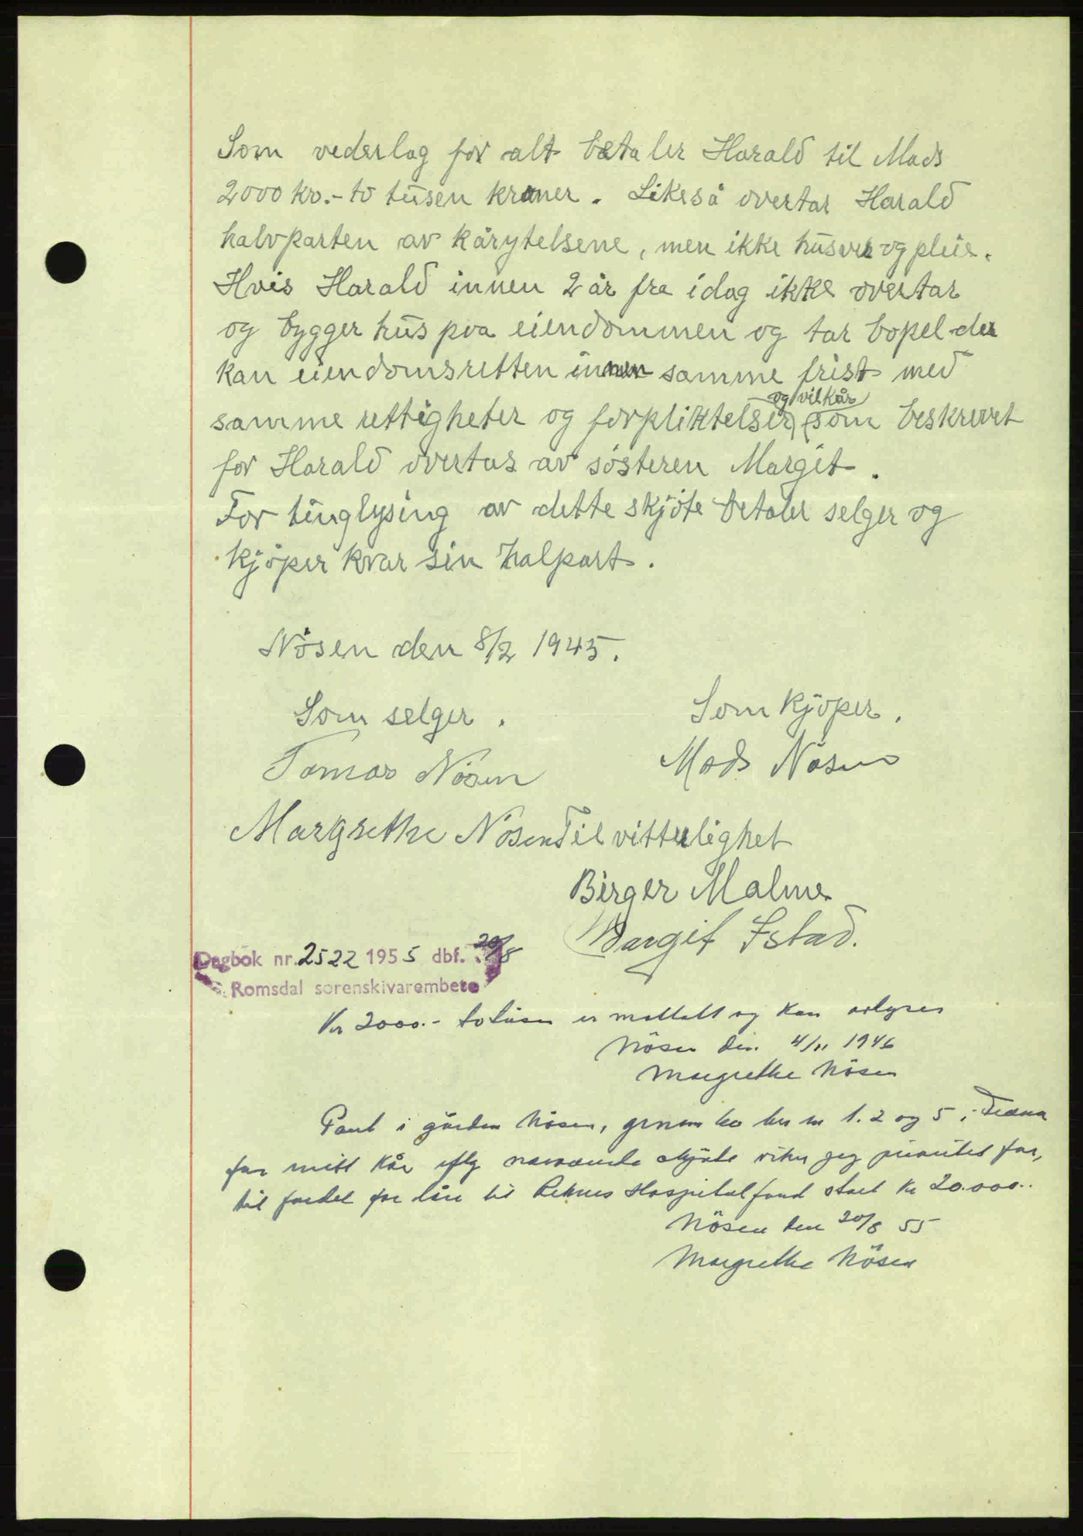 Som vederlag for alt betaler Harald til Mads
2000 kr.- to tusen kroner. Likeså overtar Harald
halvparten av kårytelsene, men ikke husvær og pleie.
Hvis Harald innen 2 år fra idag ikke overtar
og bygger hus på eiendommen og tar bopel der
kan eiendomsretten innen samme frist med
og vilkår
samme rettigheter og forpliktelser, som beskrevet
for Harald overtas av søsteren Margit.
For tinglysing av dette skjöte betaler selger og
kjöper kvar sin halpart.
Nösen den 8/2 1945.
Som selger.
Som kjöper.
Tomas Nösen
Mads Nösen
Margrethe Nösen
Til vitterlighet
Birger Malme
Margit Istad.
Dagbok nr. 2522 1955 dbf. 20/8
Romsdal sorenskrivarembete
Kr 2000.- to tusen er mottatt og kan avlyses
Nösen den 4/11 1946
Margrethe Nösen
Pant i gården Nösen, gnr br nr 1. 2 og 5 i
for mitt kår iflg nærværende skjöte viker jeg prioritet for,
til fordel for lån til Reknes Hospitalfond stort kr 20.000..
Nösen den 20/8 55
Margrethe Nösen